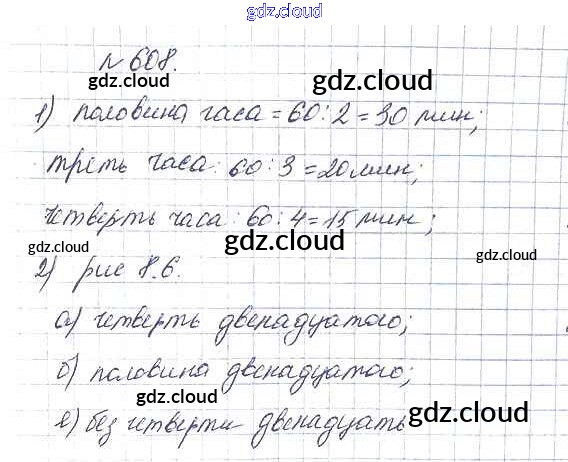 gdz.cloud
gdz.cloud
№ 608.
gdz.cloud
gdz.cloud
1) половина часа = 60 : 2 = 30 мин;
gdz.cloud
треть часа : 60 : 3 = 20 мин;
gdz.cloud
четверть часа : 60 : 4 = 15 мин;
gdz.cloud
gdz.cloud
gdz.cloud
2) рис 8.6.
gdz.cloud
а) четверть двенадцатого;
б) половина двенадцатого;
gdz.cloud
в) без четверти двенадцать
gdz.cloud
gdz.cloud